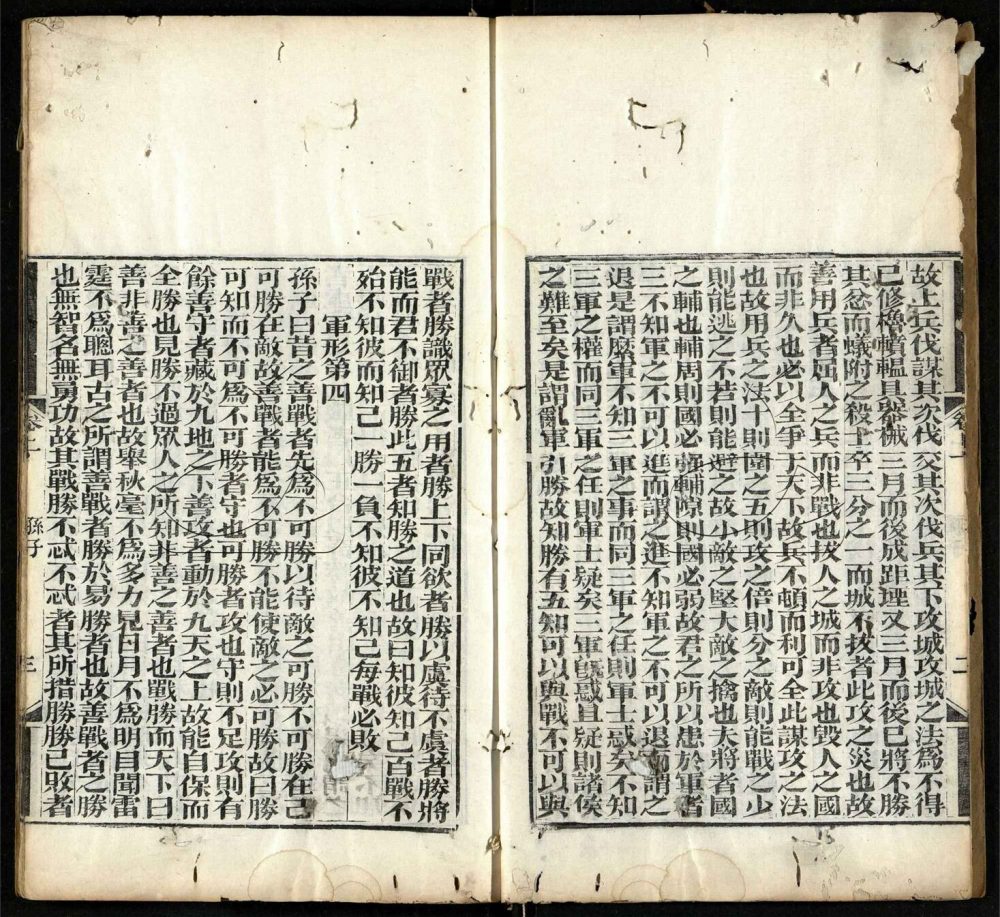 故上兵伐謀其次伐交其次伐兵其下攻城攻城之法爲不得
已修櫓轒轀具器械三月而後成距堙又三月而後已將不勝
其忿而蟻附之殺士卒三分之一而城不拔者此攻之災也故
善用兵者屈人之兵而非戰也拔人之城而非攻也毀人之國
而非久也必以全爭于天下故兵不頓而利可全此謀攻之法
也故用兵之法十則圍之五則攻之倍則分之敵則能戰之少
則能逃之不若則能避之故小敵之堅大敵之擒也夫將者國
之輔也輔周則國必強輔隙則國必弱故君之所以患於軍者
三不知軍之不可以進而謂之進不知軍之不可以退而謂之
退是謂縻軍不知三軍之事而同三軍之任則軍士惑矣不知
三軍之權而同三軍之任則軍士疑矣三軍旣惑且疑則諸侯
之難至矣是謂亂軍引勝故知勝有五知可以與戰不可以與
卷上
二
戰者勝識眾寡之用者勝上下同欲者勝以虞待不虞者勝將
能而君不御者勝此五者知勝之道也故曰知彼知己百戰不
殆不知彼而知己一勝一負不知彼不知己每戰必敗
軍形第四
孫子曰昔之善戰者先爲不可勝以待敵之可勝不可勝在己
可勝在敵故善戰者能爲不可勝不能使敵之必可勝故曰勝
可知而不可爲不可勝者守也可勝者攻也守則不足攻則有
餘善守者藏於九地之下善攻者動於九天之上故能自保而
全勝也見勝不過眾人之所知非善之善者也戰勝而天下曰
善非善之善者也故舉秋毫不爲多力見日月不爲明目聞雷
霆不爲聰耳古之所謂善戰者勝於易勝者也故善戰者之勝
也無智名無勇功故其戰勝不忒不忒者其所措勝勝已敗者
卷上
孫子
三